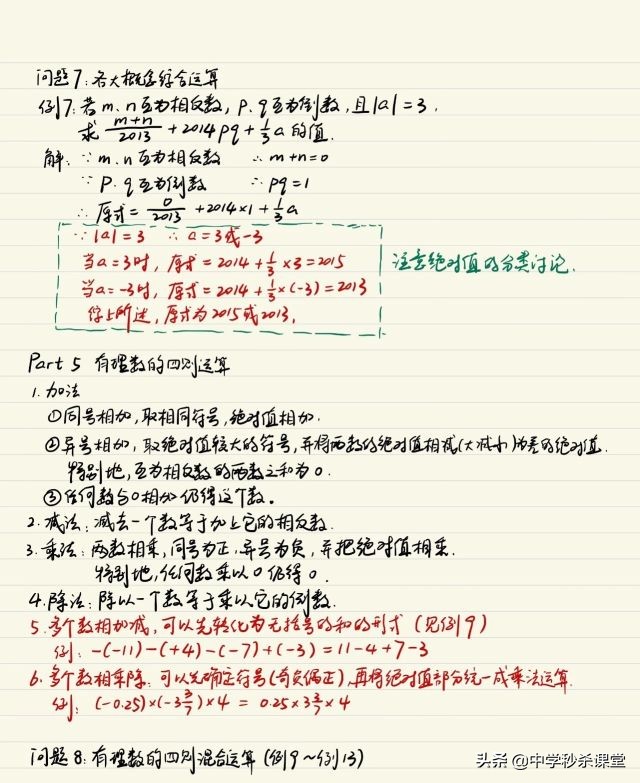 问题7:各大概念综合运算
例7:若m、n互为相反数,p、q互为倒数,且|a|=3,
求 (m+n)/2013 + 2014pq + 1/3 a 的值.
解:∵m、n互为相反数 ∴m+n=0
∵p、q互为倒数 ∴pq=1
∴原式= 0/2013 + 2014×1 + 1/3 a
∵|a|=3 ∴a=3或-3
当a=3时,原式=2014+1/3×3=2015
当a=-3时,原式=2014+1/3×(-3)=2013
综上所述,原式为2015或2013.
注意绝对值的分类讨论.
Part 5 有理数的四则运算
1.加法
①同号相加,取相同符号,绝对值相加.
②异号相加,取绝对值较大的符号,并将两数的绝对值相减(大减小)为差的绝对值.
特别地,互为相反数的两数之和为0.
③任何数与0相加仍得这个数.
2.减法:减去一个数等于加上它的相反数.
3.乘法:两数相乘,同号为正,异号为负,并把绝对值相乘.
特别地,任何数乘以0仍得0.
4.除法:除以一个数等于乘以它的倒数.
5.多个数相加减,可以先转化为无括号的和的形式(见例9)
例:-(-11)-(+4)-(-7)+(-3)=11-4+7-3
6.多个数相乘除,可以先确定符号(奇负偶正),再将绝对值部分统一成乘法运算.
例:(-0.25)×(-3 3/7)×4 = 0.25×3 3/7×4
问题8:有理数的四则混合运算(例9~例13)
头条@中学秒杀课堂